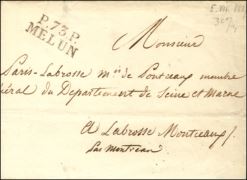 P.73.P.
MELUN
Monsieur
Paris-Labrosse m.^{is} de Pontceaux membre
éral du Département de Seine et Marne
A Labrosse Montceaux /
par Montereau